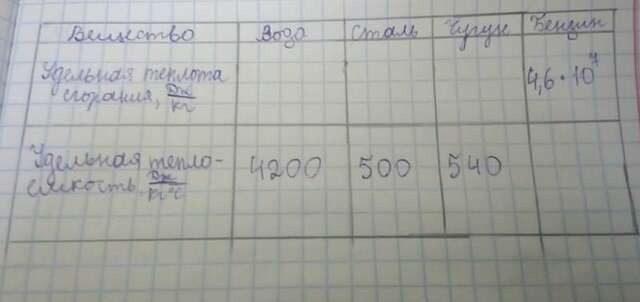 Вещество Вода Сталь Чугун Бензин
Удельная теплота
сгорания, Дж/кг 4,6·10⁷
Удельная тепло-
ёмкость Дж/кг°С 4200 500 540